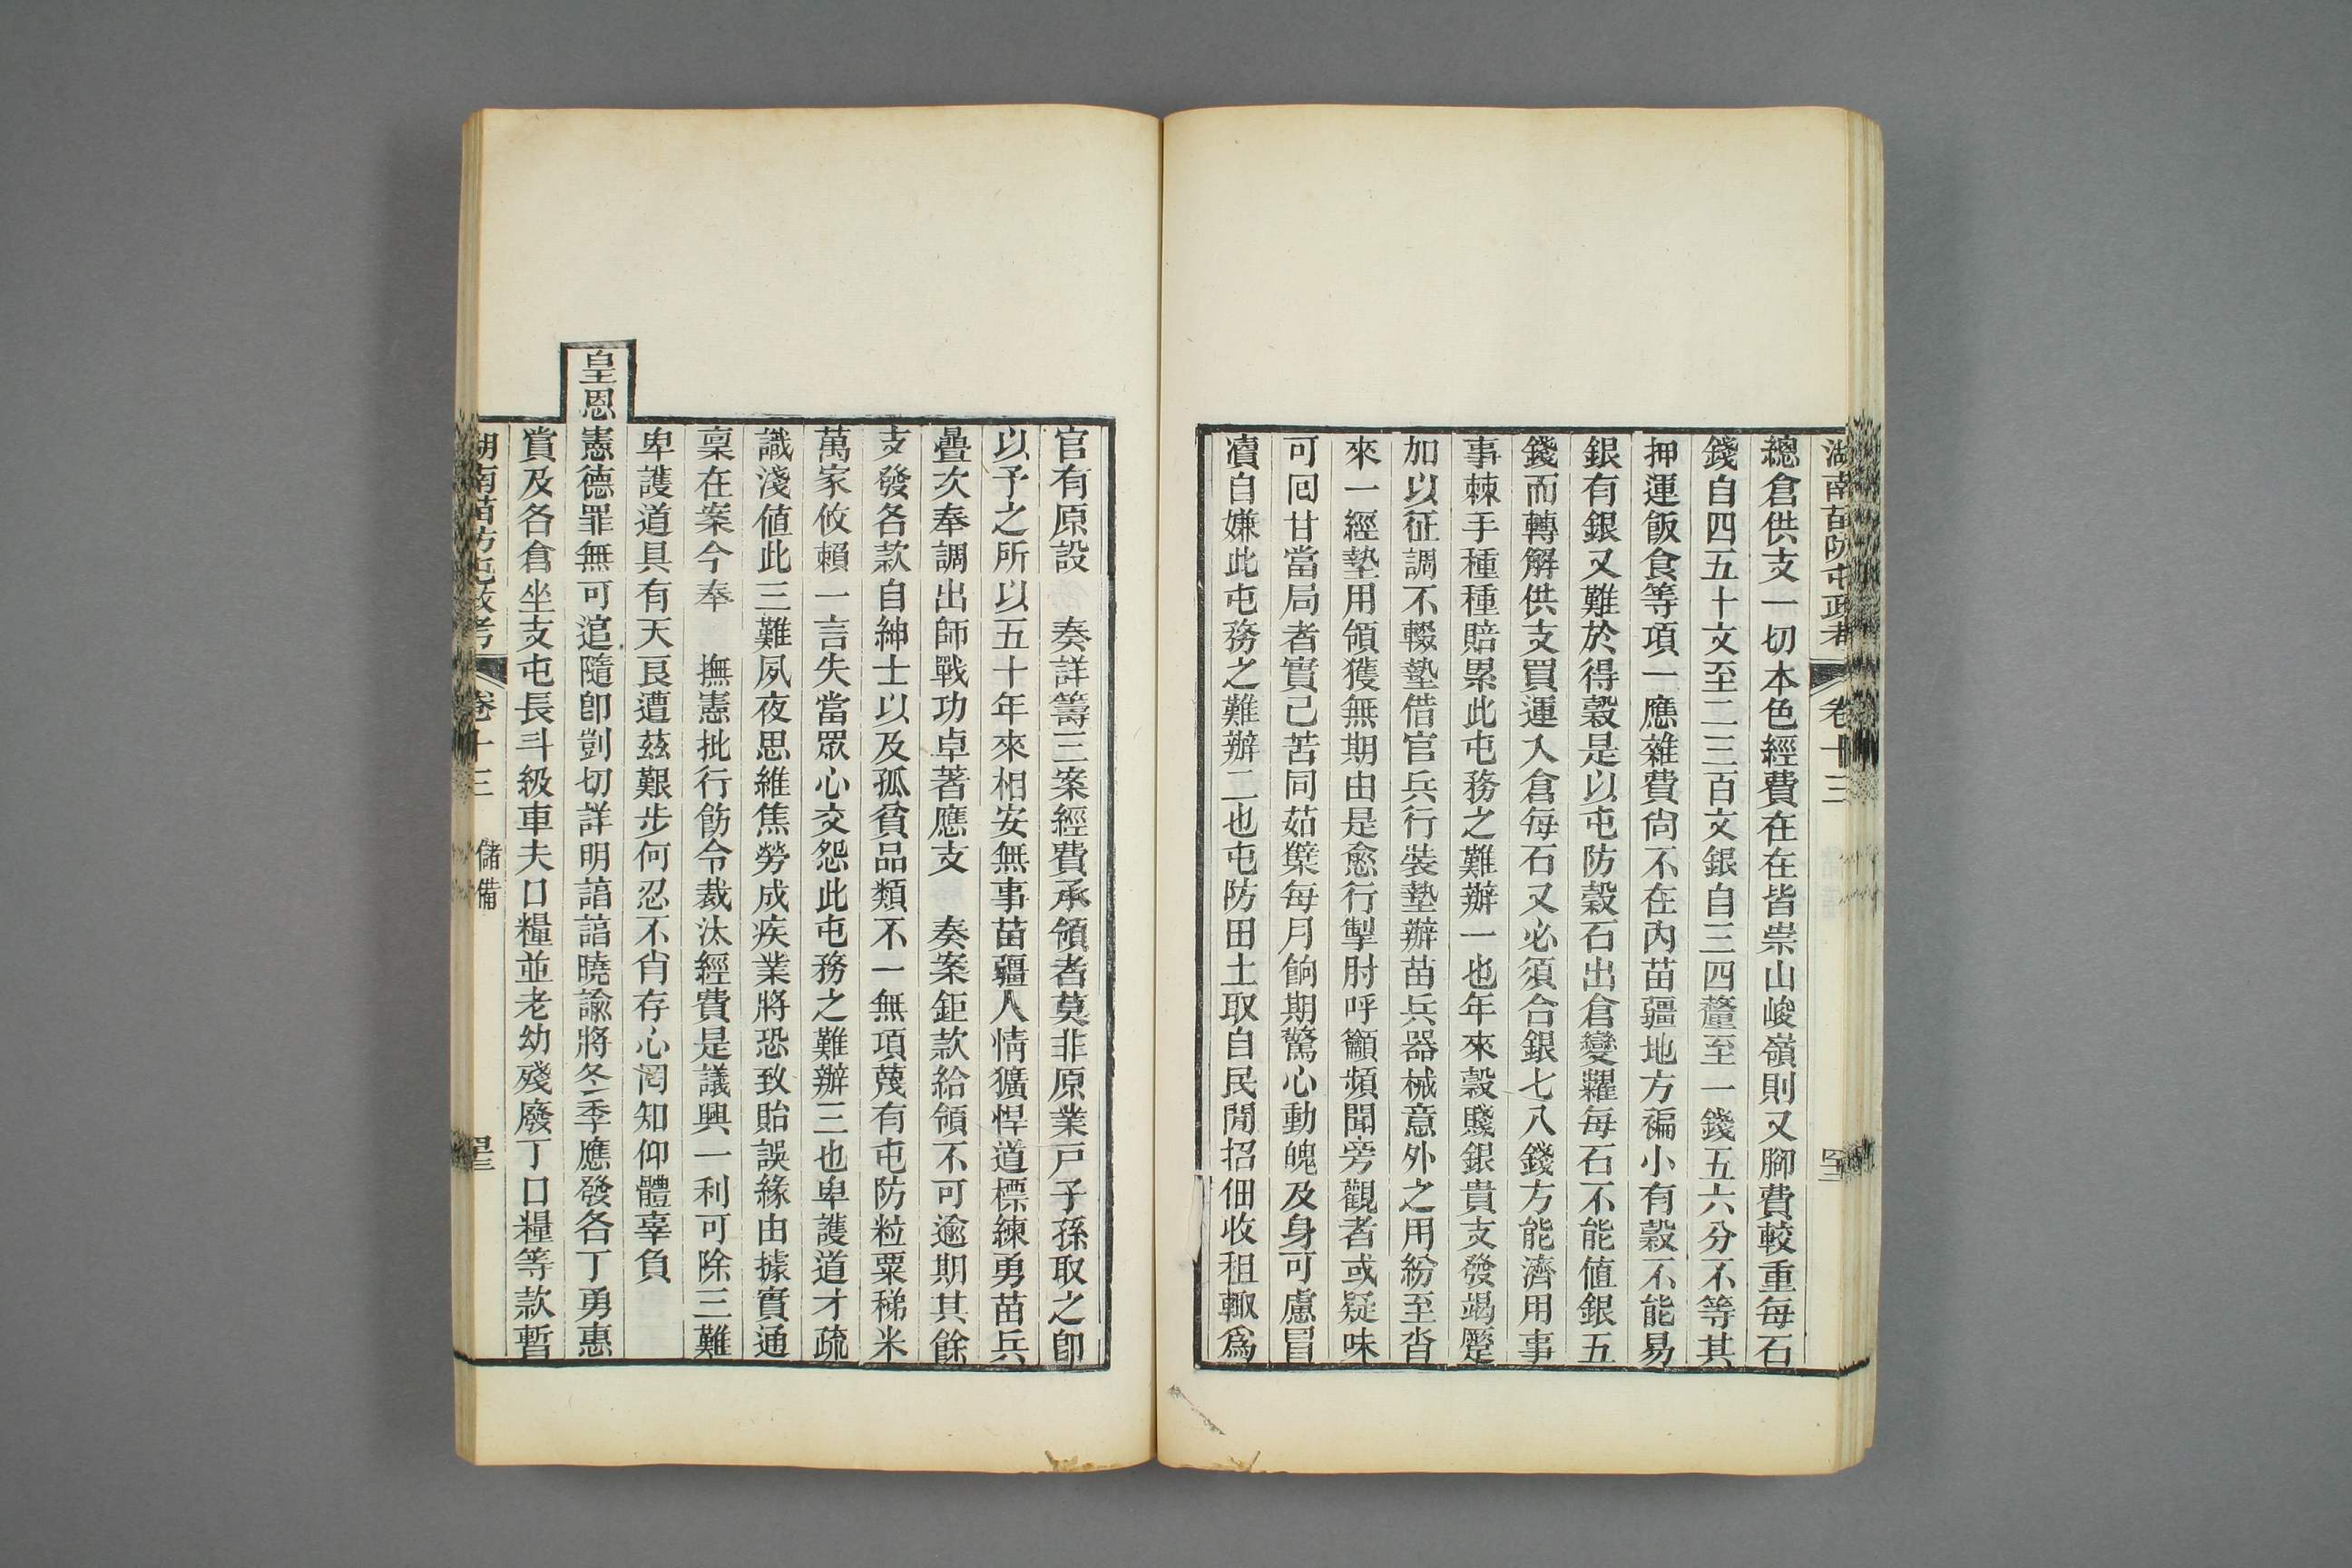 湖南苗防屯政考 卷十三
總倉供支一切本色經費在在皆崇山峻嶺則又腳費較重每石
錢自四五十文至二三百文銀自三四釐至一錢五六分不等其
押運飯食等項一應雜費尙不在內苗疆地方褊小有穀不能易
銀有銀又難於得穀是以屯防穀石出倉變糶每石不能值銀五
錢而轉解供支買運入倉每石又必須合銀七八錢方能濟用事
事棘手種種賠累此屯務之難辦一也年來穀賤銀貴支發竭蹷
加以征調不輟墊借官兵行裝墊辦苗兵器械意外之用紛至沓
來一經墊用領獲無期由是愈行掣肘呼籲頻聞旁觀者或疑味
可回甘當局者實已苦同茹櫱每月餉期驚心動魄及身可慮冒
瀆自嫌此屯務之難辦二也屯防田土取自民閒招佃收租輙爲
官有原設 奏詳籌三案經費承領者莫非原業戶子孫取之卽
以予之所以五十年來相安無事苗疆人情獷悍道標練勇苗兵
疊次奉調出師戰功卓著應支 奏案鉅款給領不可逾期其餘
支發各款自紳士以及孤貧品類不一無項蔑有屯防粒粟稊米
萬家攸賴一言失當眾心交怨此屯務之難辦三也卑護道才疏
識淺値此三難夙夜思維焦勞成疾業將恐致貽誤緣由據實通
稟在案今奉 撫憲批行飭令裁汰經費是議興一利可除三難
卑護道具有天良遭茲艱步何忍不肖存心罔知仰體辜負
皇恩憲德罪無可逭隨卽剴切詳明諳諳曉諭將冬季應發各丁勇惠
賞及各倉坐支屯長斗級車夫口糧並老幼殘廢丁口糧等款暫
湖南苗防屯政考 卷十三 儲備